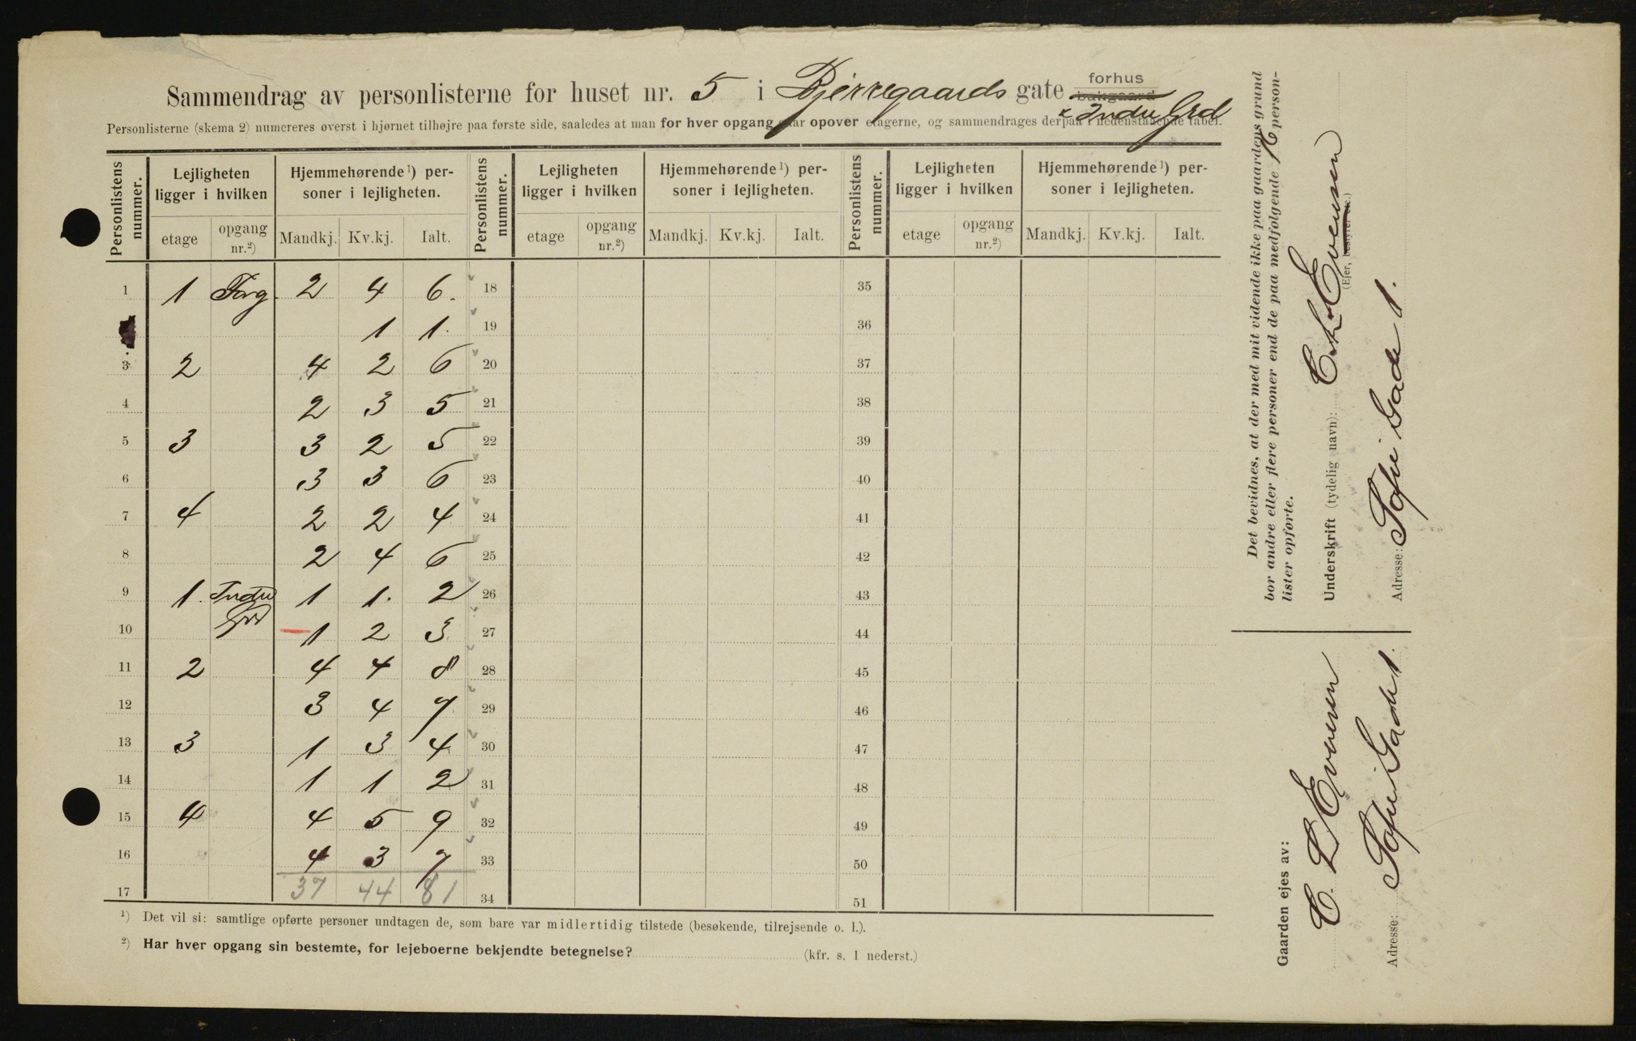 Sammendrag av personlisterne for huset nr. 5 i Bjerregaards gate forhus
bakgaard
x Indre Grd
Personlisterne (skema 2) numereres øverst i hjørnet tilhøjre paa første side, saaledes at man for hver opgang gaar opover etagerne, og sammendrages derpaa i nedenstaaende tabel.
Personlistens nummer. Lejligheten ligger i hvilken Hjemmehørende ¹) personer i lejligheten. Personlistens nummer. Lejligheten ligger i hvilken Hjemmehørende ¹) personer i lejligheten. Personlistens nummer. Lejligheten ligger i hvilken Hjemmehørende ¹) personer i lejligheten.
etage opgang nr.²) Mandkj. Kv.kj. Ialt. etage opgang nr.²) Mandkj. Kv.kj. Ialt. etage opgang nr.²) Mandkj. Kv.kj. Ialt.
1 1 Forg. 2 4 6. 18 35
1 1. 19 36
3 2 4 2 6 20 37
4 2 3 5 21 38
5 3 3 2 5 22 39
6 3 3 6 23 40
7 4 2 2 4 24 41
8 2 4 6 25 42
9 1. Indre Grd 1 1. 2 26 43
10 1 2 3. 27 44
11 2 4 4 8 28 45
12 3 4 7 29 46
13 3 1 3 4 30 47
14 1 1 2 31 48
15 4 4 5 9 32 49
16 4 3 7 33 50
17 37 44 81 34 51
¹) Det vil si: samtlige opførte personer undtagen de, som bare var midlertidig tilstede (besøkende, tilrejsende o. l.).
²) Har hver opgang sin bestemte, for lejeboerne bekjendte betegnelse? (kfr. s. 1 nederst.)
Det bevidnes, at der med mit vidende ikke paa gaardens grund
bor andre eller flere personer end de paa medfølgende 16 person-
lister opførte.
Underskrift (tydelig navn): C. L. Evensen
(Ejer, bestyrer etc.)
Adresse: Sofie Gade 1.
Gaarden ejes av: C. L. Evensen
Adresse: Sofie Gade 1.